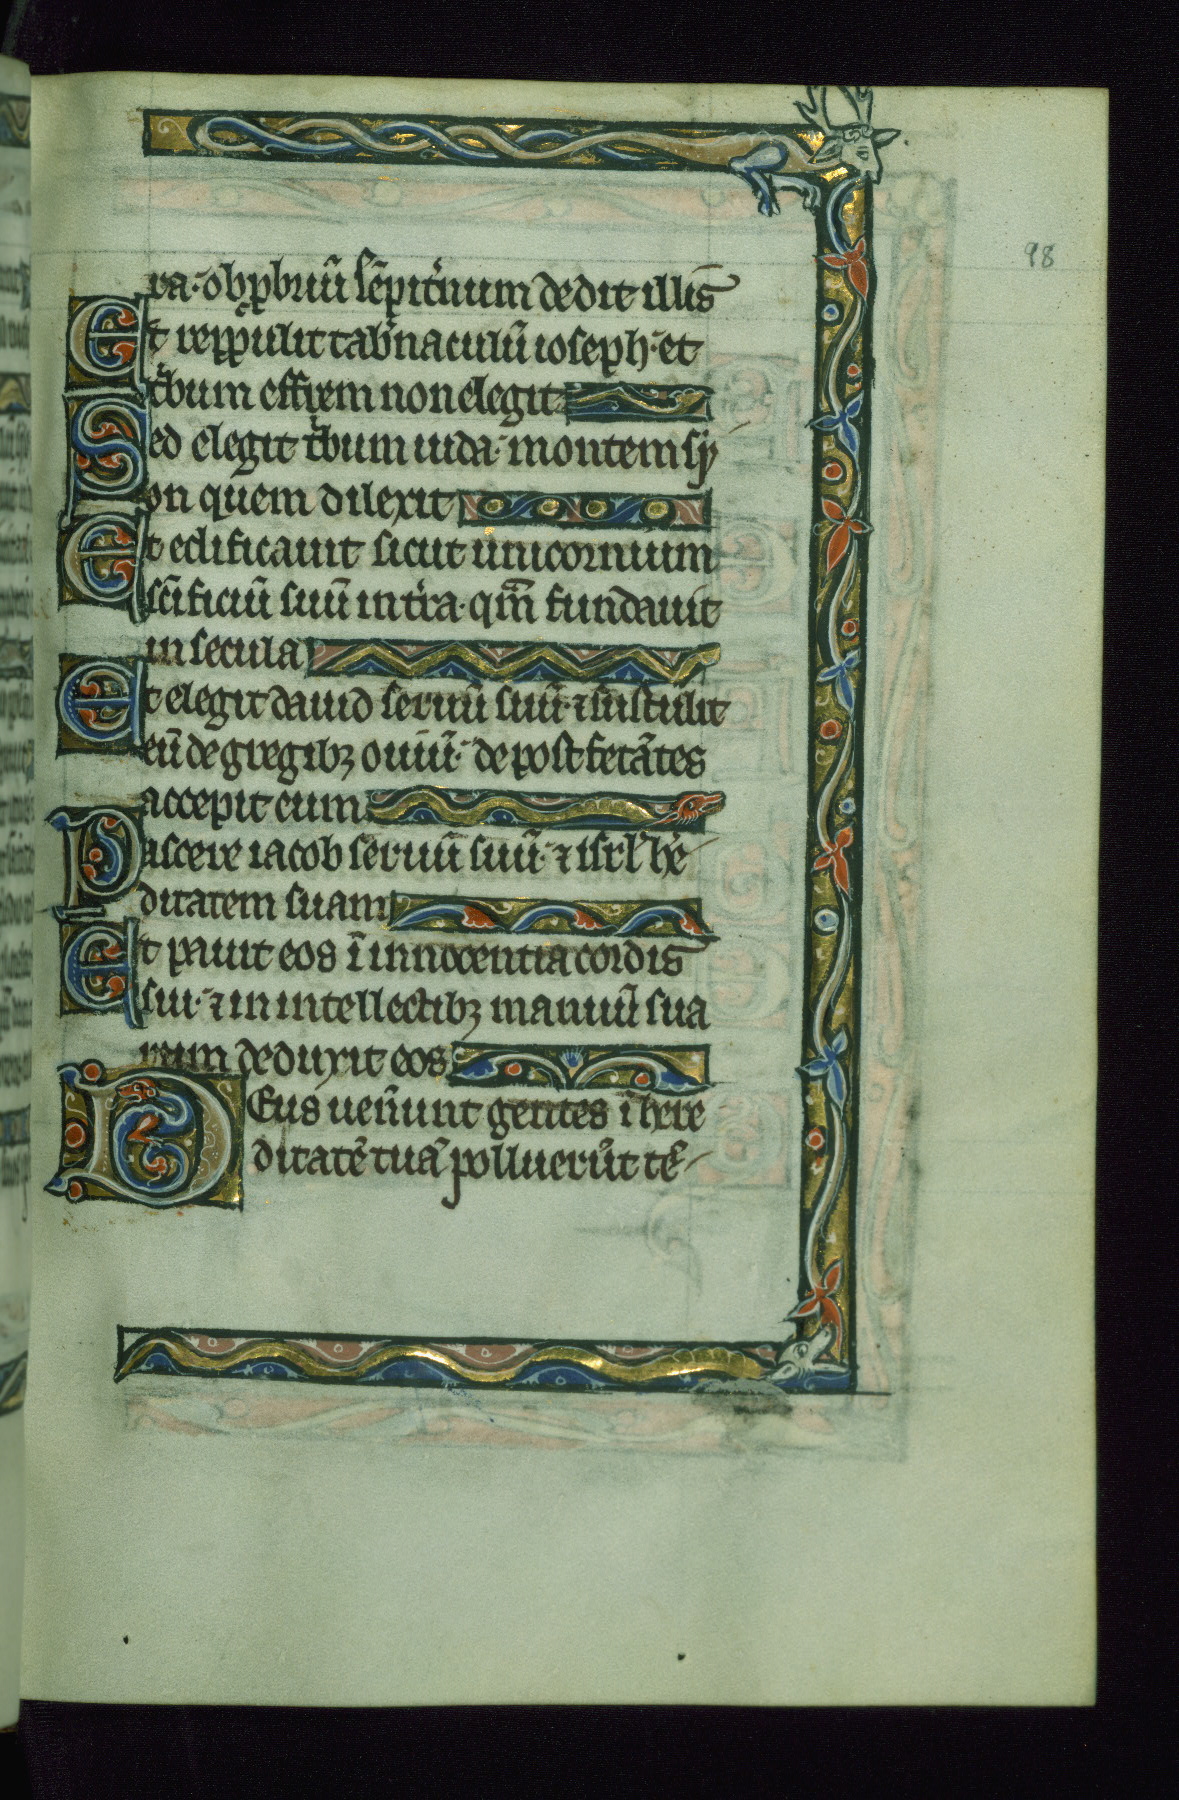 98
ra· obp̱briū sēpit̾nuum dedit illis̄
Et reppulit tab̾naculū ioseph· et
t̾bum effrem non elegit
Sed elegit t̾bum iuda· montem sy
on quem dilexit
Et edificauit sicut unicornium
sc̄ificiū suū in t̾ra· qm̄ fundauit
in secula
Et elegit dauid seruū suū· ⁊ sustulit
eū de gregibꝫ ouiū· de post fetātes
accepit eum
Pascere iacob seruū suū· ⁊ isrl̾ he
ditatem suam
Et pauit eos ī innocentia cordis
sui· ⁊ in intellectibꝫ manuū sua
rum deduxit eos
DEus uen̾unt gentes ī here
ditatē tuā polluerūt tē